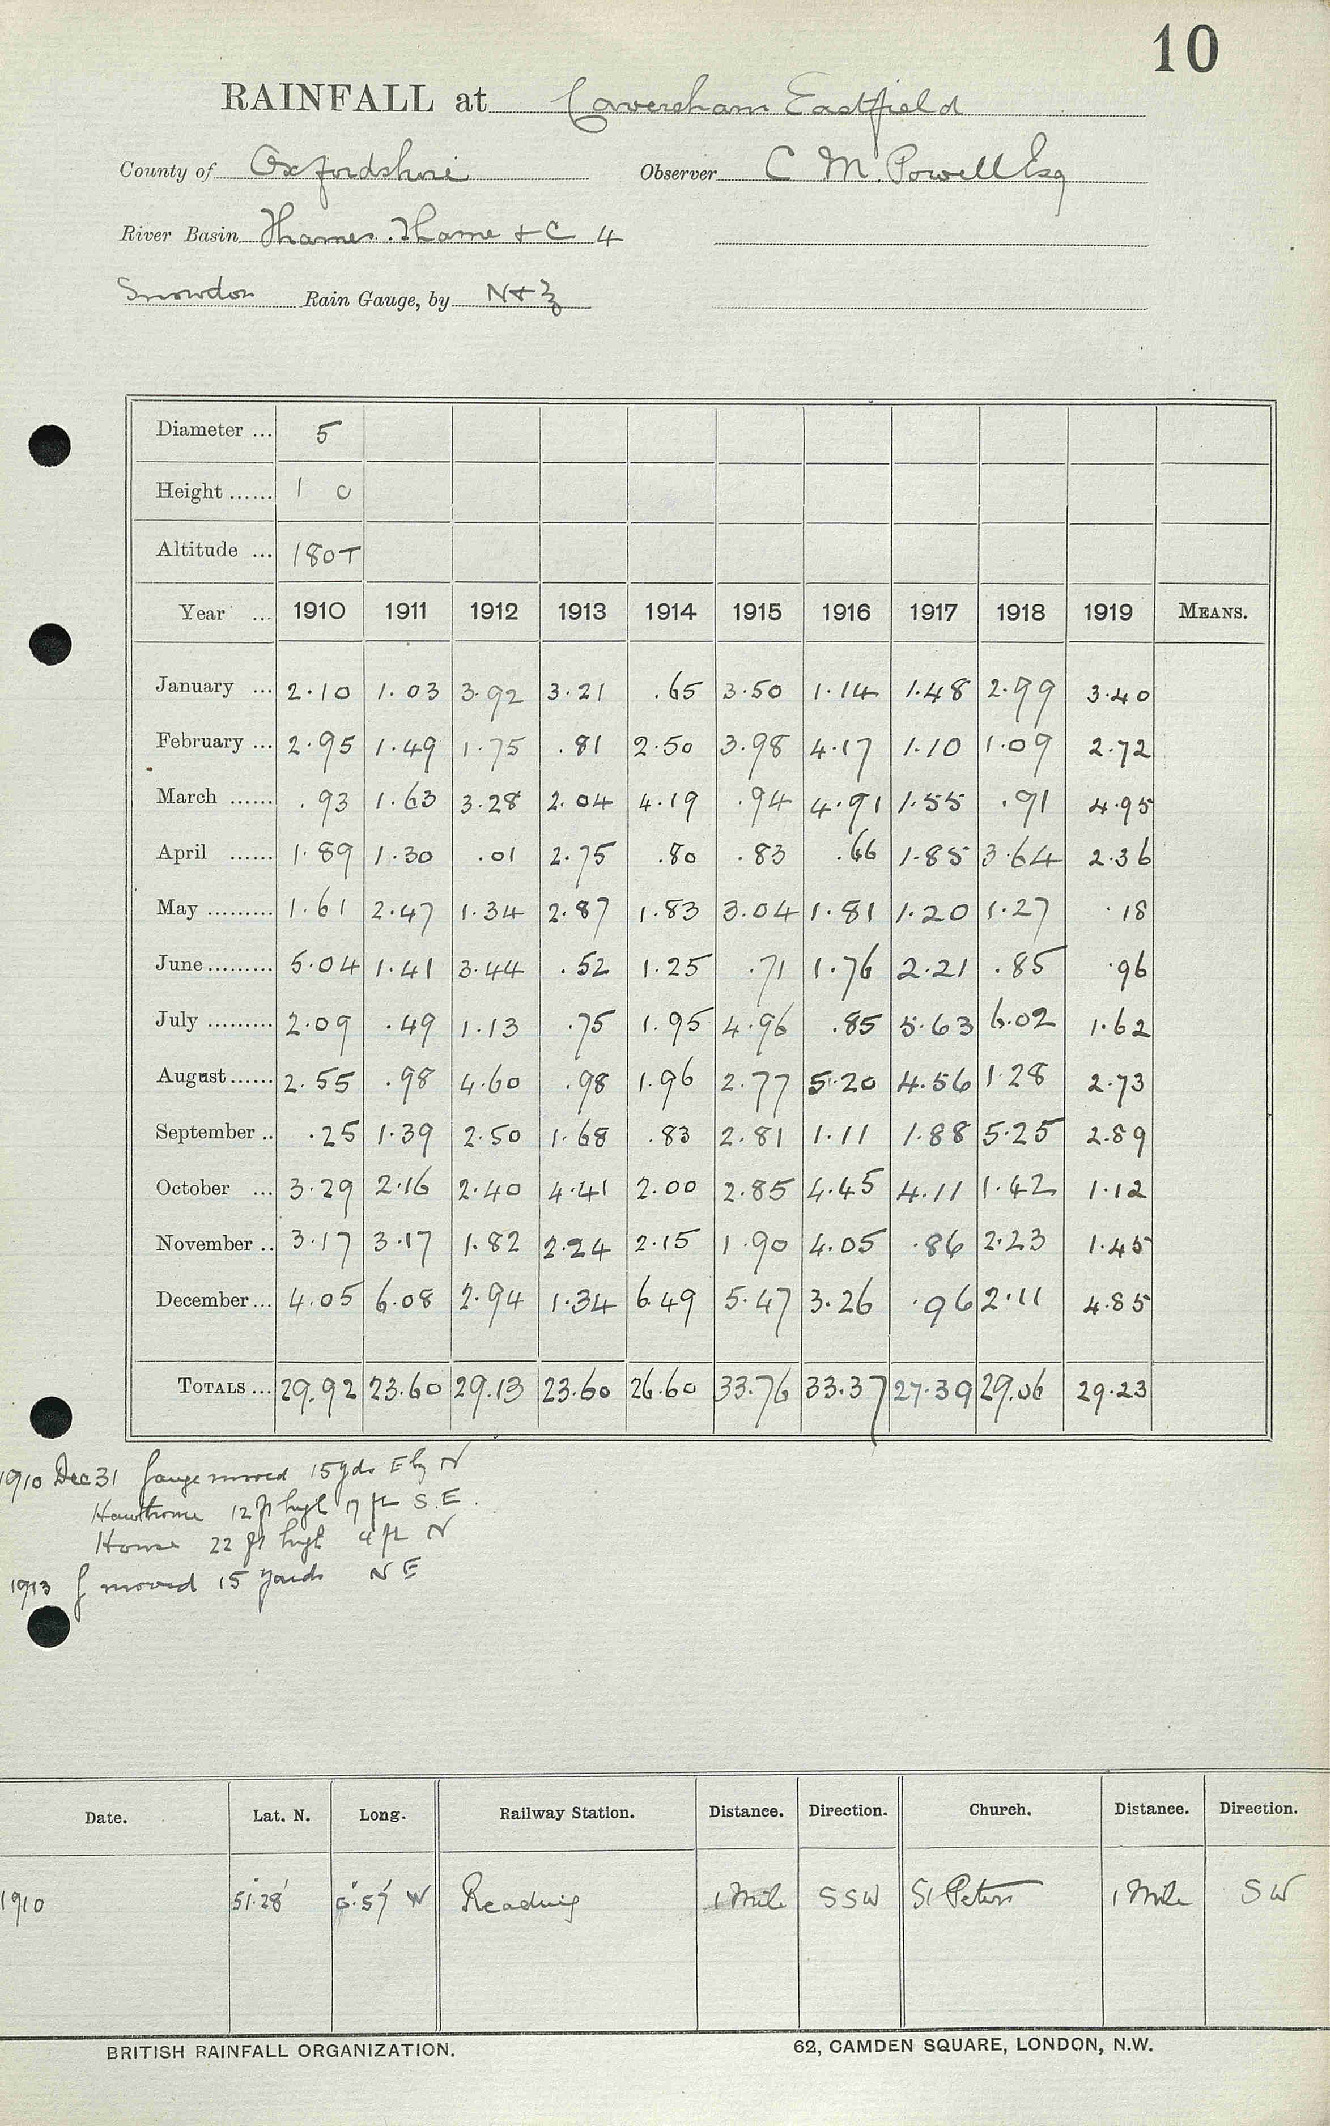 10
RAINFALL at Caversham Eastfield
County of Oxfordshire Observer C M. Powell Esq
River Basin Thames. Thame & C 4
Snowdon Rain Gauge, by N & Z
Diameter ... 5
Height ...... 1 0
Altitude ... 180T
Year ... 1910 1911 1912 1913 1914 1915 1916 1917 1918 1919 MEANS.
January ... 2.10 1.03 3.92 3.21 .65 3.50 1.14 1.48 2.99 3.40
February ... 2.95 1.49 1.75 .81 2.50 3.98 4.17 1.10 1.09 2.72
March ...... .93 1.63 3.28 2.04 4.19 .94 4.91 1.55 .91 4.95
April ...... 1.89 1.30 .01 2.75 .80 .83 .66 1.85 3.64 2.36
May ......... 1.61 2.47 1.34 2.87 1.83 3.04 1.81 1.20 1.27 .18
June ......... 5.04 1.41 3.44 .52 1.25 .71 1.76 2.21 .85 .96
July ......... 2.09 .49 1.13 .75 1.95 4.96 .85 5.63 6.02 1.62
August ...... 2.55 .98 4.60 .98 1.96 2.77 5.20 4.56 1.28 2.73
September .. .25 1.39 2.50 1.68 .83 2.81 1.11 1.88 5.25 2.89
October ... 3.29 2.16 2.40 4.41 2.00 2.85 4.45 4.11 1.42 1.12
November .. 3.17 3.17 1.82 2.24 2.15 1.90 4.05 .86 2.23 1.45
December ... 4.05 6.08 2.94 1.34 6.49 5.47 3.26 .96 2.11 4.85
TOTALS ... 29.92 23.60 29.13 23.60 26.60 33.76 33.37 27.39 29.06 29.23
1910 Dec 31 Gauge moved 15 yds E by N
Hawthorne 12 ft high 7 ft S.E.
House 22 ft high 4 ft N
1913 G moved 15 yards N E
Date. Lat. N. Long. Railway Station. Distance. Direction. Church. Distance. Direction.
1910 51° 28' 0° 57' W Reading 1 Mile SSW St Peters 1 Mile SW
BRITISH RAINFALL ORGANIZATION. 62, CAMDEN SQUARE, LONDON, N.W.